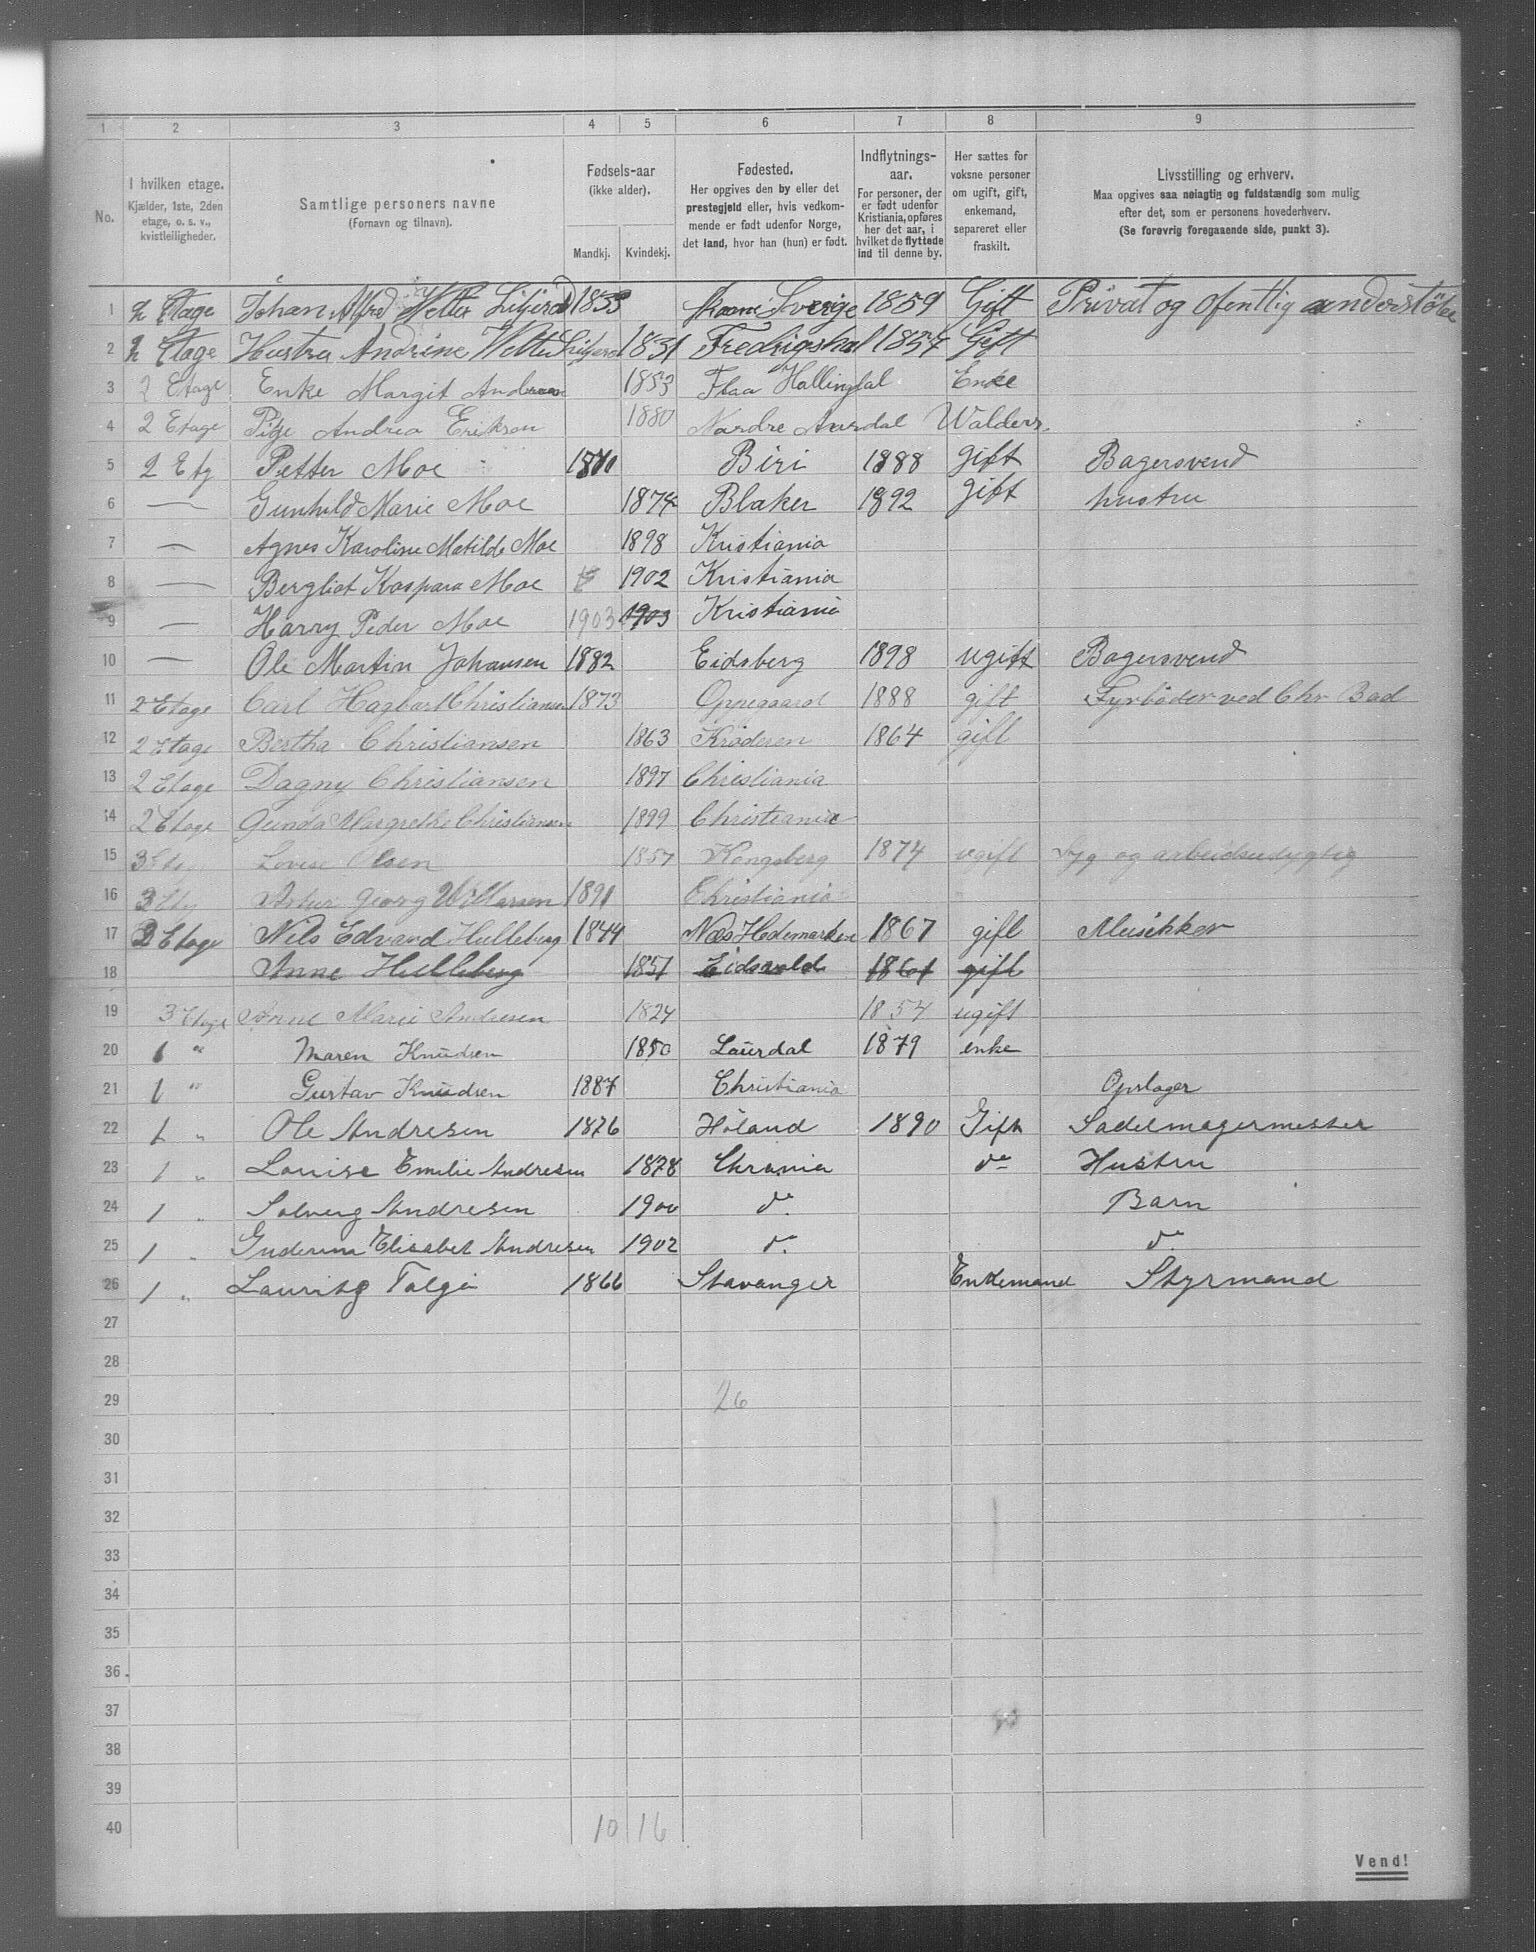 1 2 3 4 5 6 7 8 9
No.
I hvilken etage.
Kjælder, 1ste, 2den
etage, o. s. v.,
kvistleiligheder.
Samtlige personers navne
(Fornavn og tilnavn).
Fødsels-aar
(ikke alder).
Mandkj. Kvindekj.
Fødested.
Her opgives den by eller det
prestegjeld eller, hvis vedkom-
mende er født udenfor Norge,
det land, hvor han (hun) er født.
Indflytnings-
aar.
For personer, der
er født udenfor
Kristiania, opføres
her det aar, i
hvilket de flyttede
ind til denne by.
Her sættes for
voksne personer
om ugift, gift,
enkemand,
separeret eller
fraskilt.
Livsstilling og erhverv.
Maa opgives saa nøiagtig og fuldstændig som mulig
efter det, som er personens hovederhverv.
(Se forøvrig foregaaende side, punkt 3).
1 2 Etage Johan Alfred 1833 Sverige 1859 Gift Privat og ofentlig
2 2 Etage Hustru Andrine 1831 1857 Gift
3 2 Etage Enke Margit 1853 Flaa Hallingdal Enke
4 2 Etage Pige Andrea Erikson 1880 Nordre Aurdal Walders.
5 2 Etg Petter Moe Biri 1888 gift Bagersvend
6 — Gunhild Marie Moe 1874 Blaker 1892 gift hustru
7 — Agnes Karoline Matilde Moe 1898 Kristiania
8 — Bergliot Kaspara Moe 1902 Kristiania
9 — Harry Peder Moe 1903 1903 Kristiania
10 — Ole Martin Johansen 1882 Eidsberg 1898 ugift Bagersvend
11 2 Etage Carl Hagbart Christiansen 1873 Oppegaard 1888 gift Fyrbøder ved Chr Bad
12 2 Etage Bertha Christiansen 1863 Krøderen 1864 gift
13 2 Etage Dagny Christiansen 1897 Christiania
14 2 Etage Gunda Margrethe Christiansen 1899 Christiania
15 3 Etg Lovise Olsen 1857 Kongsberg 1874 ugift Syg og arbeidsudygtig
16 3 Etg Artur Georg Willarsen 1891 Christiania
17 3 Etage Nils Edvard Hulleberg 1844 Næs Hedemarken 1867 gift Musikker
18 Anne Hulleberg 1851 Eidsvold gift
19 3 Etage Marie Andresen 1824 1854 ugift
20 1 " Maren Knudsen 1850 Laurdal 1879 enke
21 1 " Gustav Knudsen 1887 Christiania Opslager
22 1 " Ole Andresen 1876 Høland 1890 Gift Sadelmagermester
23 1 " Louise Emilie Andresen 1878 Chrania do Hustru
24 1 " Solveig Andresen 1900 do Barn
25 1 " Elisabet Andresen 1902 do do
26 1 " Lauritz 1866 Stavanger Enkemand Styrmand
27
28
29 26
30
31
32
33
34
35
36
37
38
39
40 10 16
Vend!